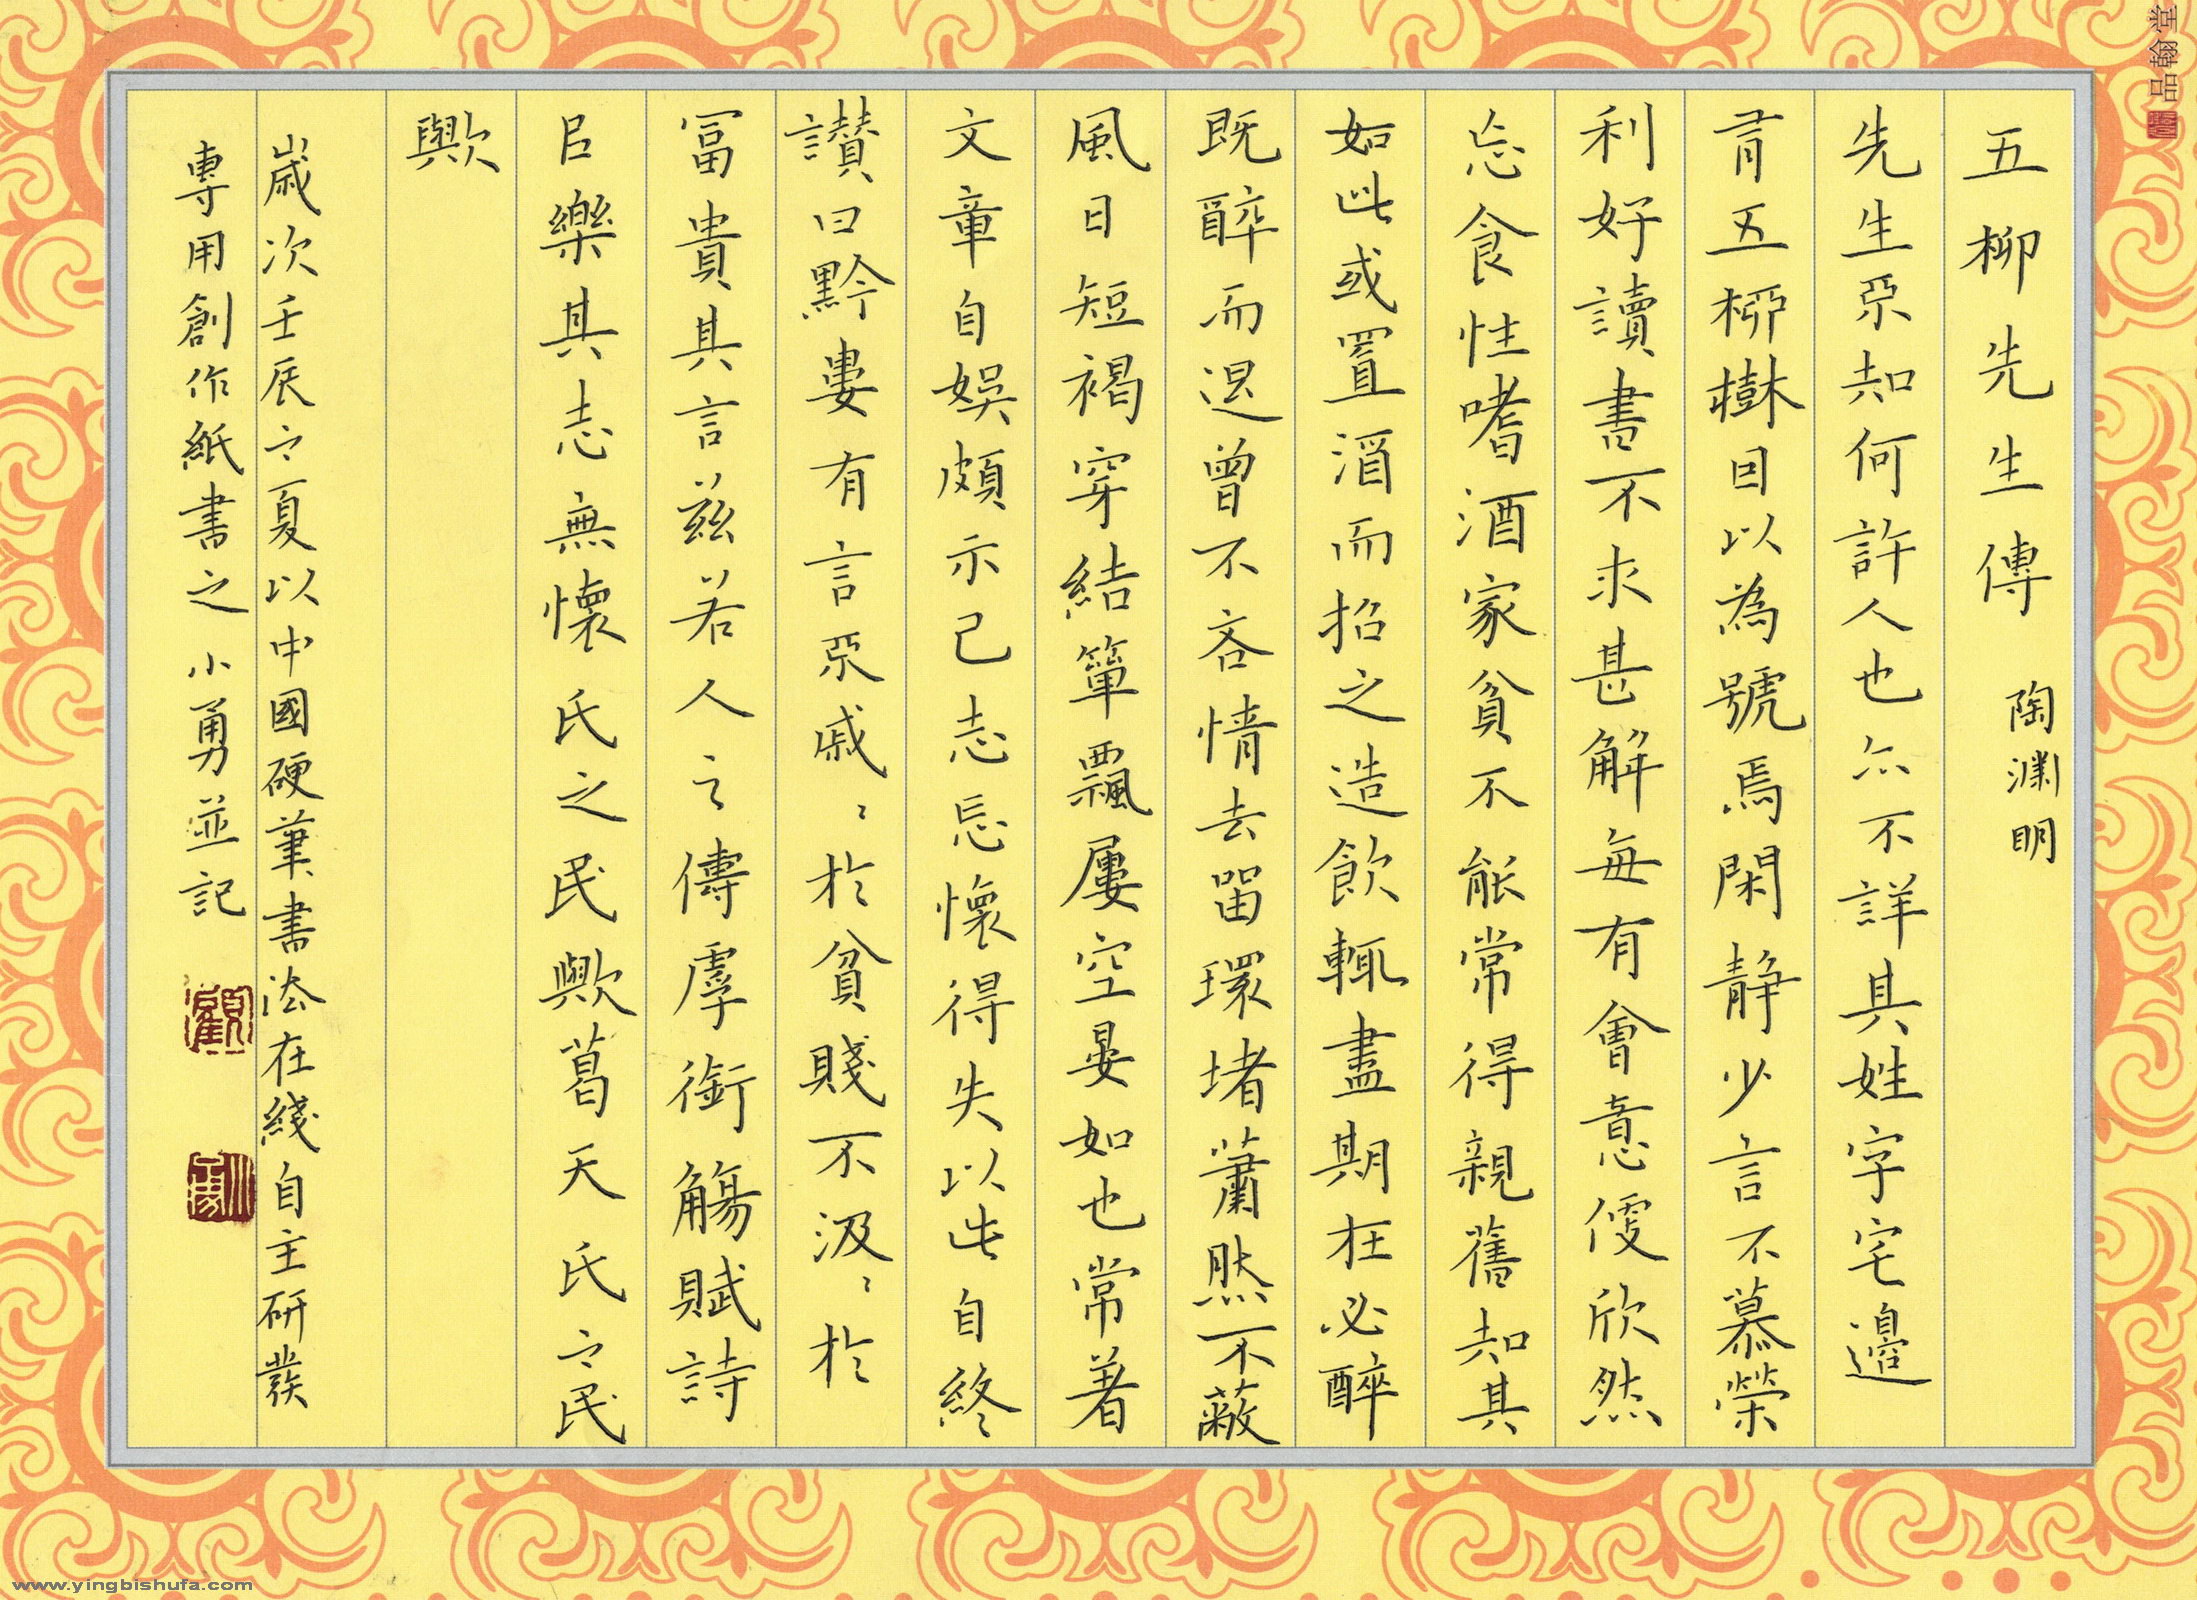 五柳先生傳 陶渊明
先生不知何許人也亦不詳其姓字宅邊
有五柳樹因以為號焉閑静少言不慕榮
利好讀書不求甚解每有會意便欣然
忘食性嗜酒家貧不能常得親舊知其
如此或置酒而招之造飲輒盡期在必醉
既醉而退曾不吝情去留環堵蕭然不蔽
風日短褐穿結簞瓢屢空晏如也常著
文章自娛頗示己志忘懷得失以此自終
讃曰黔婁有言不戚〻於貧賤不汲〻於
冨貴其言兹若人之儔乎銜觴賦詩
以樂其志無懷氏之民歟葛天氏之民
歟
歲次壬辰之夏以中國硬筆書法在綫自主研發
專用創作紙書之 小勇並記
顧
小勇
品翰堂
www.yingbishufa.com